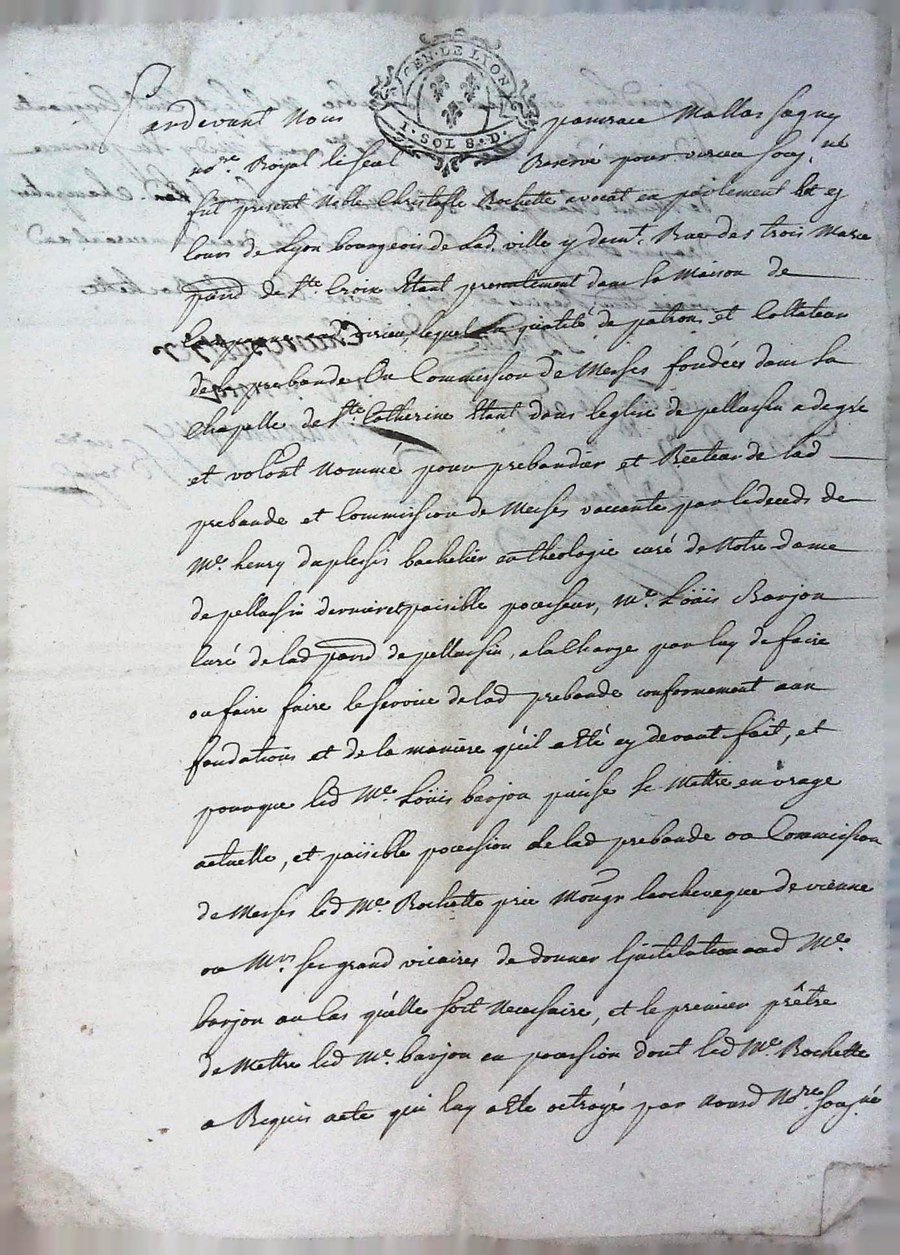 GEN. DE LYON
1. SOL 8. D.
Pardevant Nous pancrace Mallas Sagny
no.re Royal le seul Reservé pour virieu sousg.né
fut present Noble Christofle Rochette avocat en parlement Et ez
Cours de Lyon bourgeois de Lad. ville y demt. Rue des trois Marie
paroisse de Ste Croix Etant presentement dans la Maison de
virieu, lequel en qualité de patron et Collateur
de la prebande Ou Commission de Messes fondées dans la
Chapelle de Ste Catherine Etant dans l'eglise de pellussin a de gré
et volonté Nommé pour prebandier et Recteur de lad
prebande et Commission de Messes vaccante par le deceds de
Me. henry duplessis bachelier en theologie curé de Notre dame
de pellussin dernier et paisible pocesseur, Me. Loüis Barjon
Curé de lad parr de pellussin, a la Charge par luy de faire
ou faire faire le service de lad prebande conformement aux
fondations et de la maniere qu'il a Eté cy devant fait, et
pour que led Me. Loüis barjon puisse se Mettre en vrage
actuelle, et paisible pocession de lad prebande ou Commission
de Messes led Me. Rochette prie Mongr l'archeveque de vienne
ou Mrs ses grand vicaires de donner Linstitution aud Me.
barjon au Cas qu'elle soit Necessaire, et le premier prêtre
de Mettre led Me. barjon en pocession dont led Me. Rochette
a Requis acte qui luy a Eté octroyé par nousd No.re sousg.né